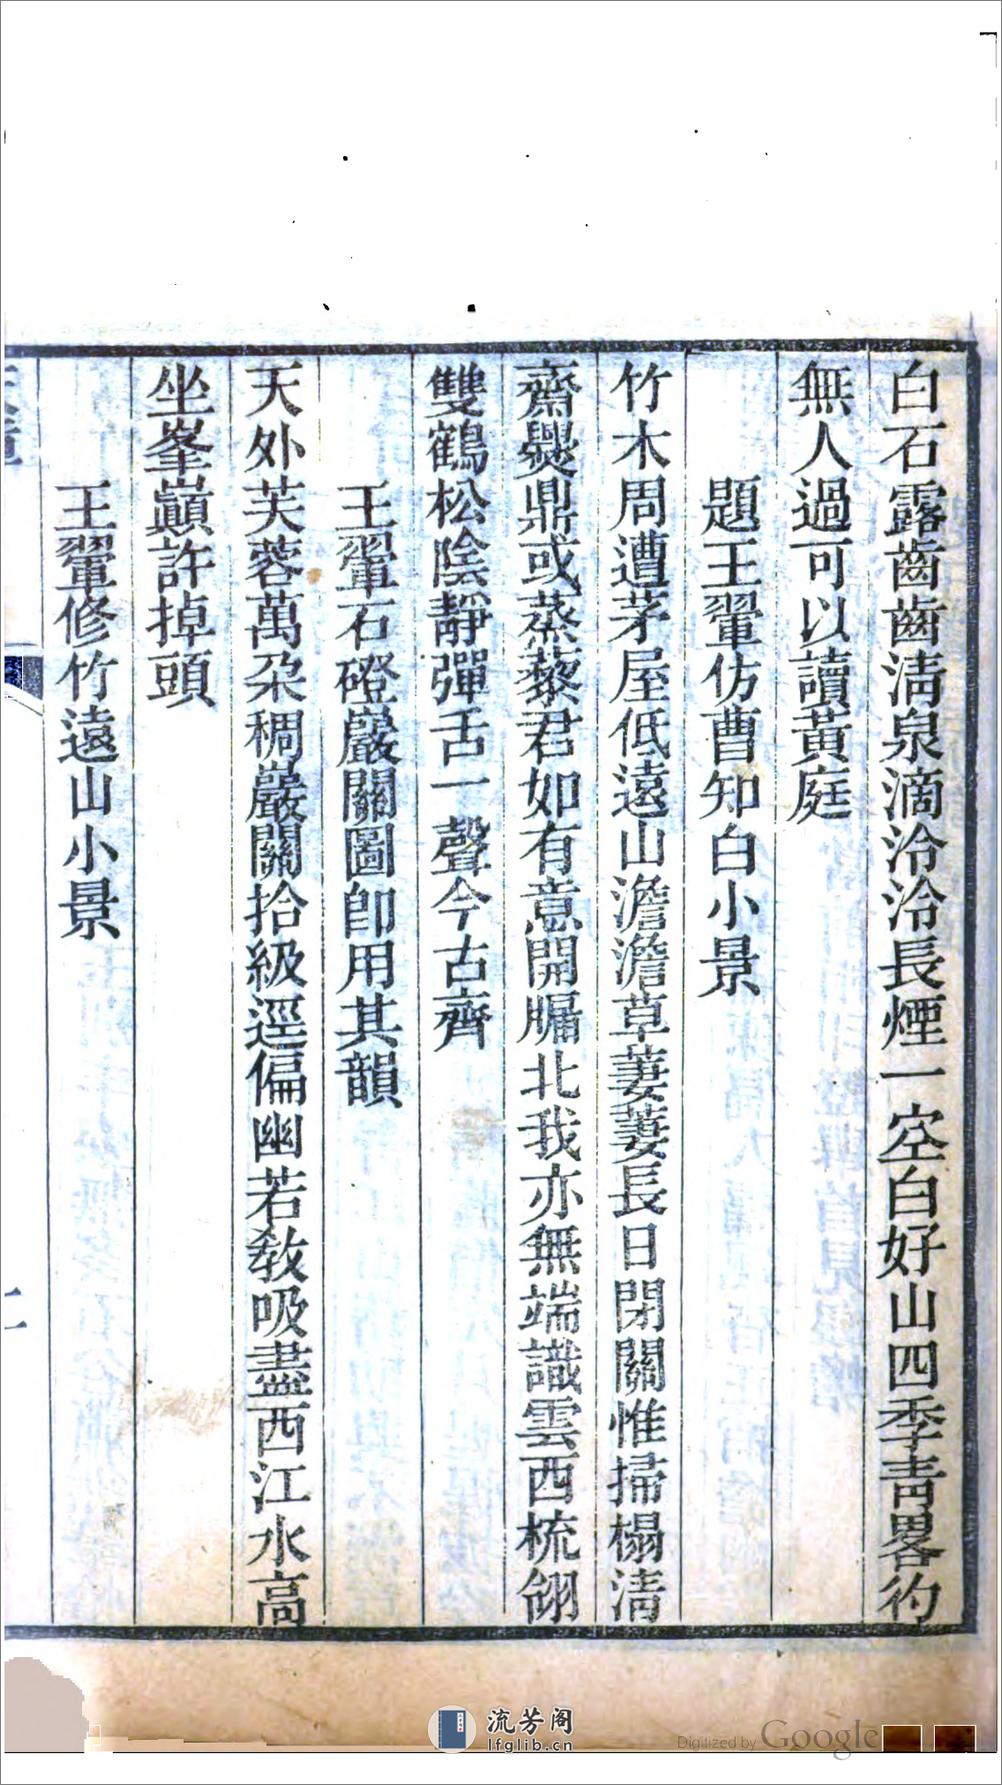 白石露齒齒清泉滴泠泠長煙一空白好山四季青畧彴
無人過可以讀黃庭
題王翬仿曹知白小景
竹木周遭茅屋低遠山澹澹草萋萋長日閉關惟掃榻清
齋爨鼎或蒸藜君如有意開牖北我亦無端識雲西梳翎
雙鶴松陰靜彈舌一聲今古齊
王翬石磴巖關圖卽用其韻
天外芙蓉萬朶稠巖關拾級逕偏幽若教吸盡西江水高
坐峯巔許掉頭
王翬修竹遠山小景
流芳阁
lfglib.cn
Digitized by Google